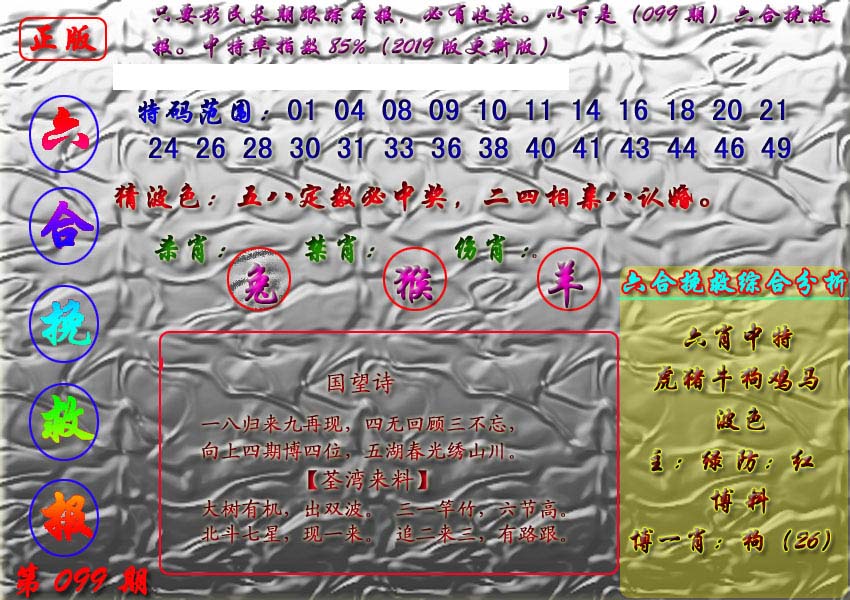 正版
只要彩民长期跟踪本报，必有收获。以下是（099期）六合挽救
报。中特率指数85%（2019版更新版）
六合挽救报
第099期
特码范围：01 04 08 09 10 11 14 16 18 20 21
24 26 28 30 31 33 36 38 40 41 43 44 46 49
猜波色：五八定数必中奖，二四相亲八认婚。
杀肖：兔 禁肖：猴 伤肖：羊。
国望诗
一八归来九再现，四无回顾三不忘，
向上四期博四位，五湖春光绣山川。
【荃湾来料】
大树有机，出双波。 三一竿竹，六节高。
北斗七星，现一来。 追二来三，有路跟。
六合挽救综合分析
六肖中特
虎猪牛狗鸡马
波色
主：绿 防：红
博料
博一肖：狗（26）